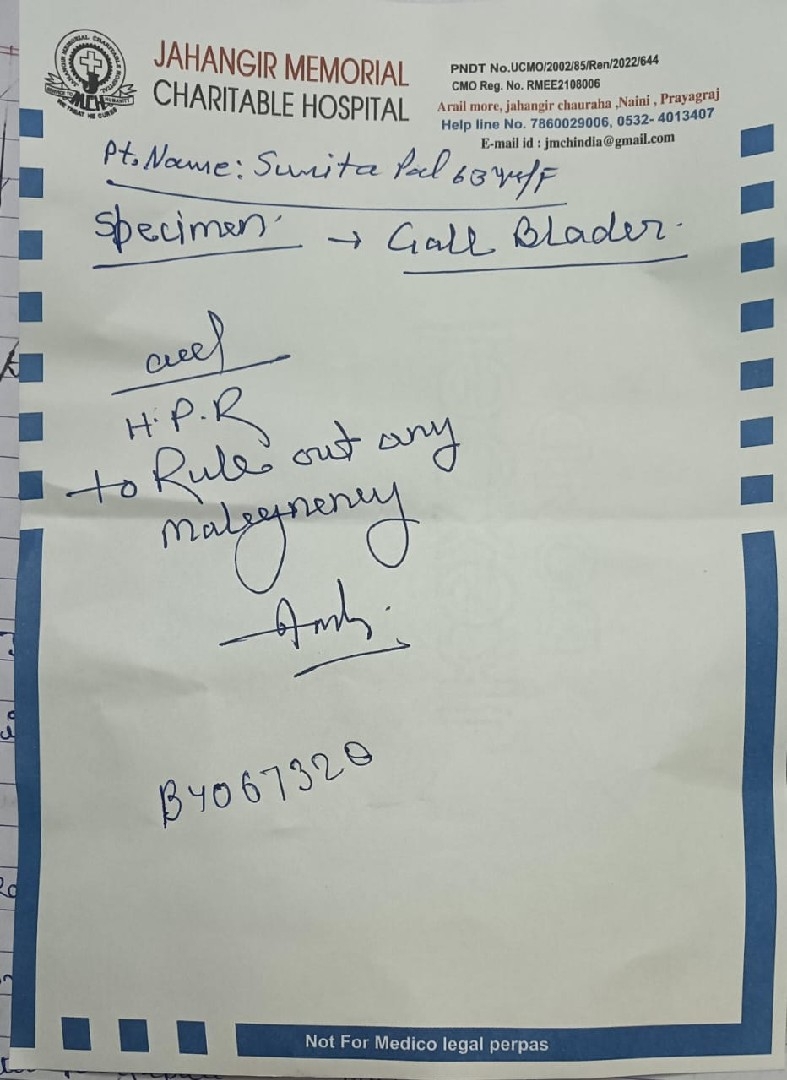 JAHANGIR MEMORIAL
CHARITABLE HOSPITAL
PNDT No.UCMO/2002/85/Ren/2022/644
CMO Reg. No. RMEE2108006
Arail more, jahangir chauraha ,Naini , Prayagraj
Help line No. 7860029006, 0532- 4013407
E-mail id : jmchindia@gmail.com
Pt. Name: Sunita Pal 63 yr/F
Specimen → Gall Blader.
H.P.R
to Rule out any
Malegnency
B4067320
Not For Medico legal perpas